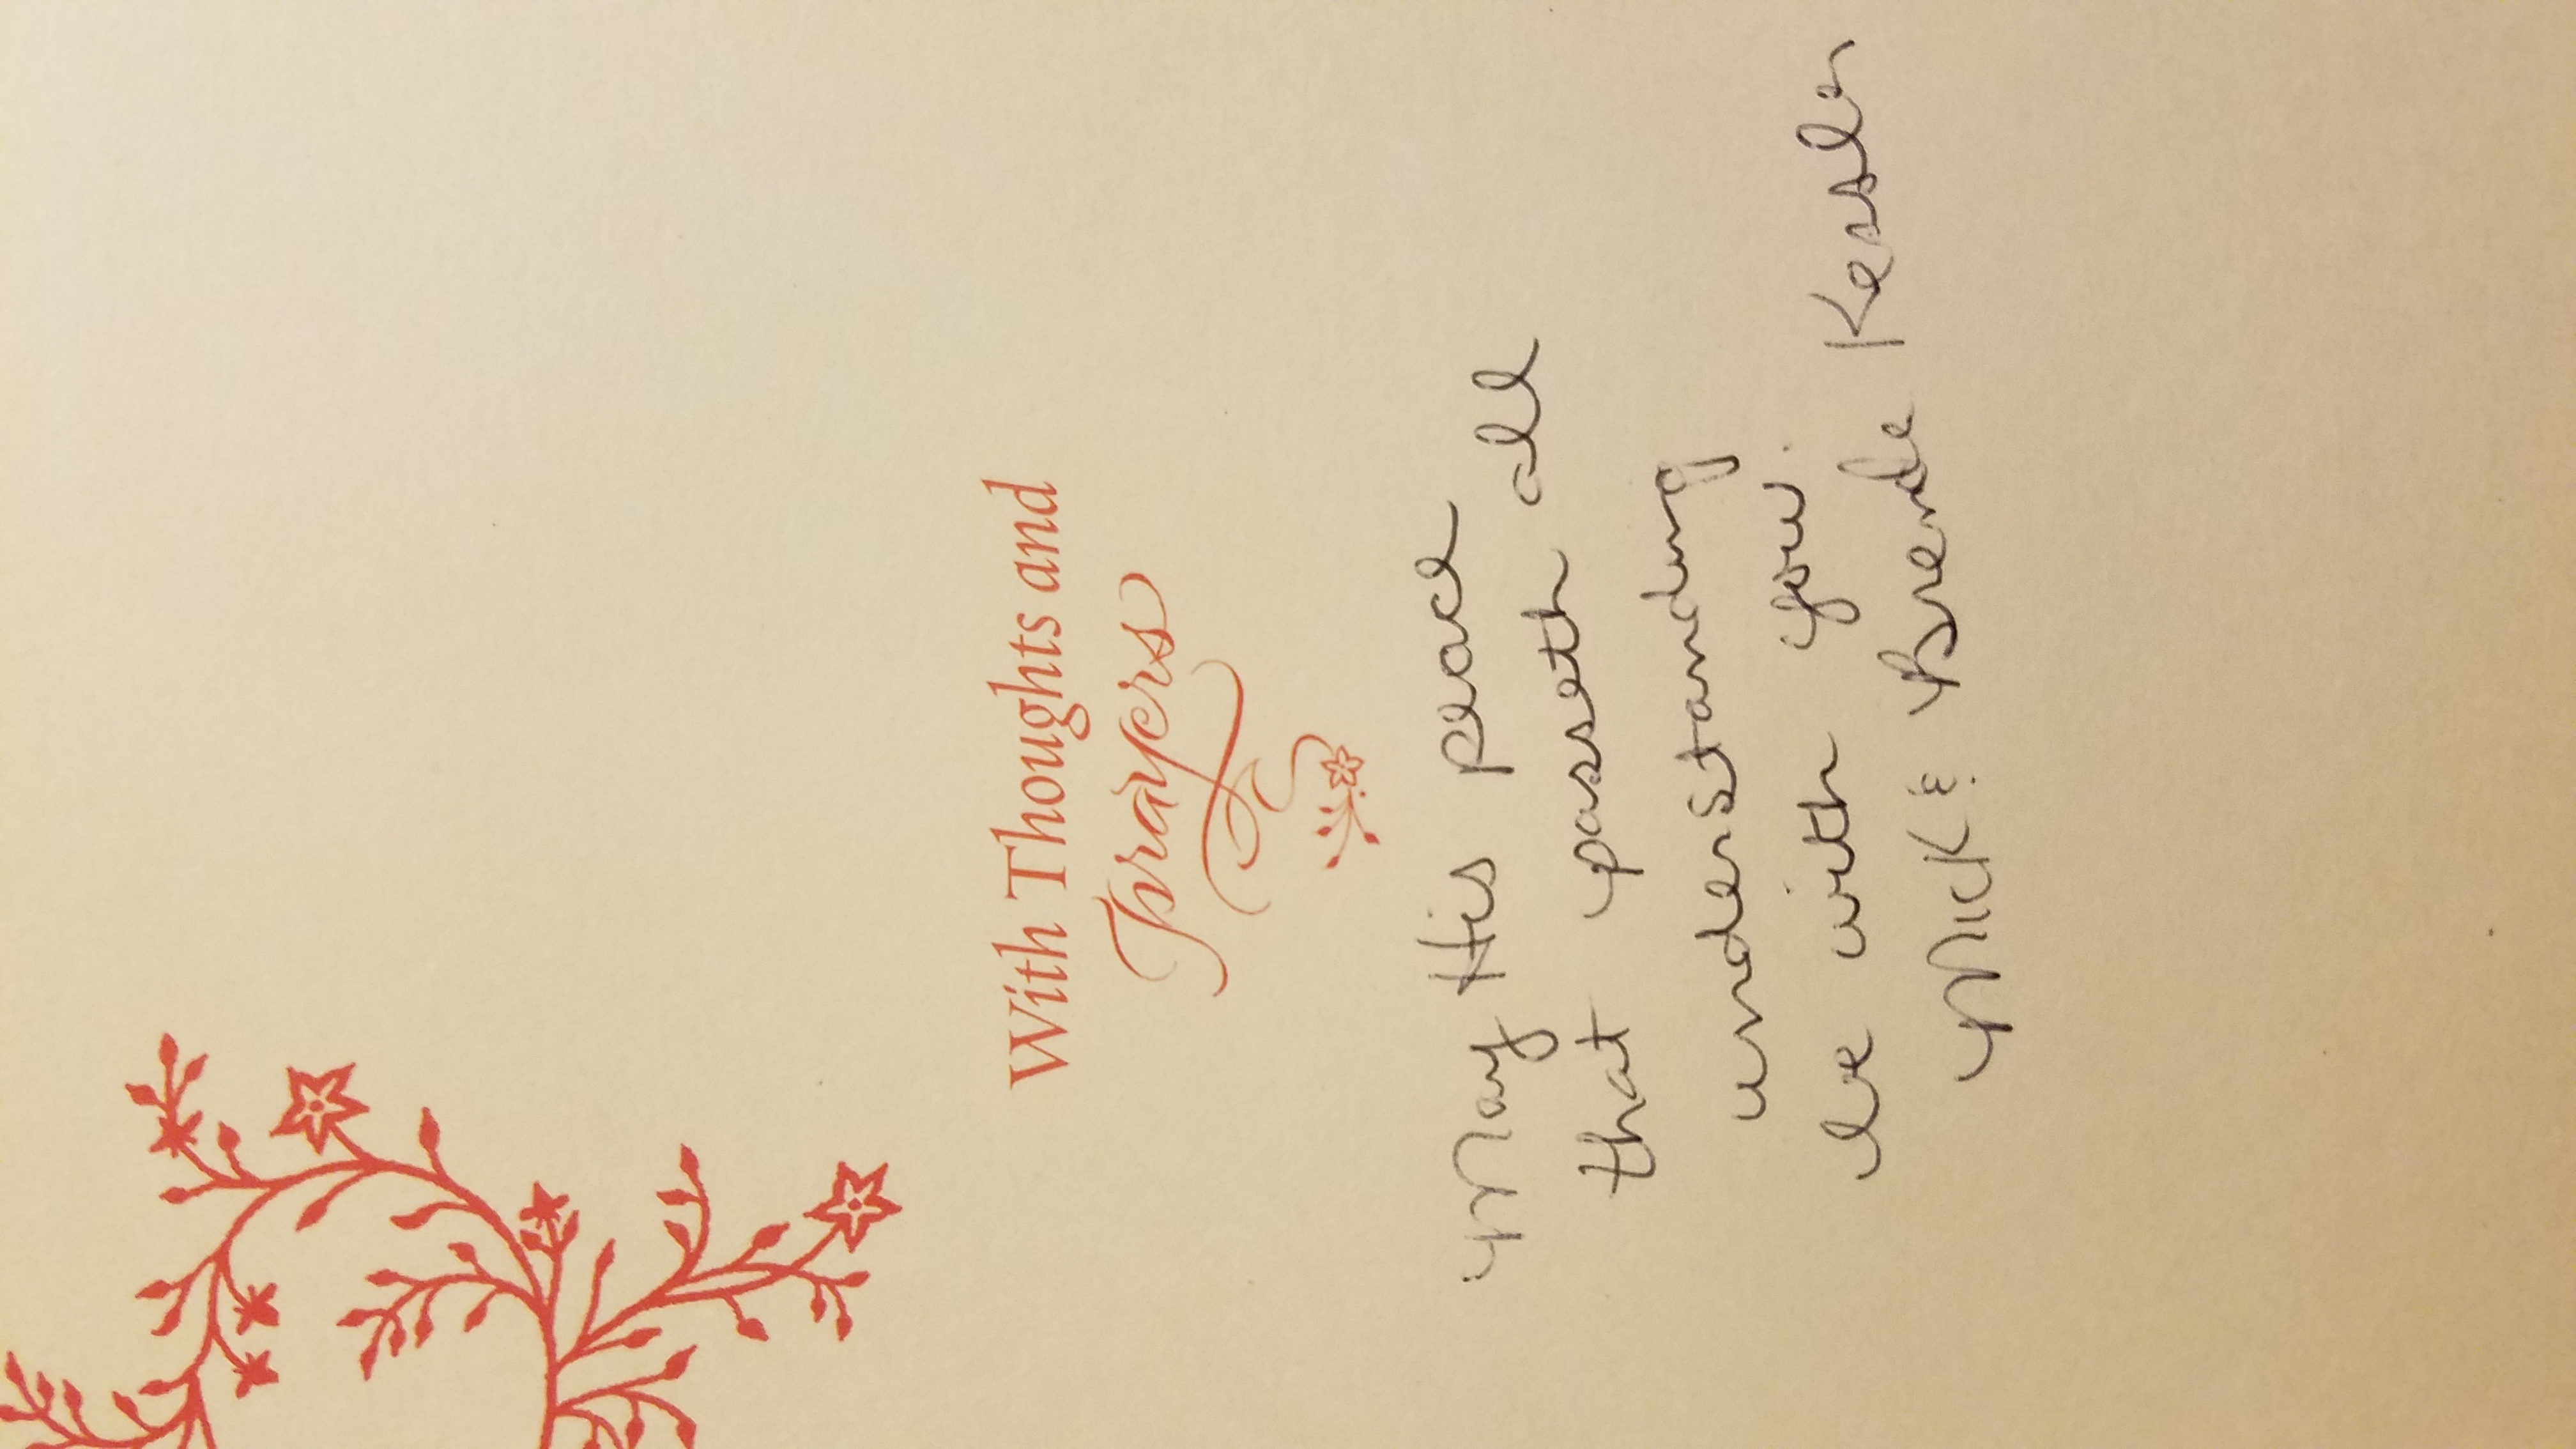 With Thoughts and
Prayers
May His peace
that passeth all
understanding
be with you.
Mick & Brenda Kessler